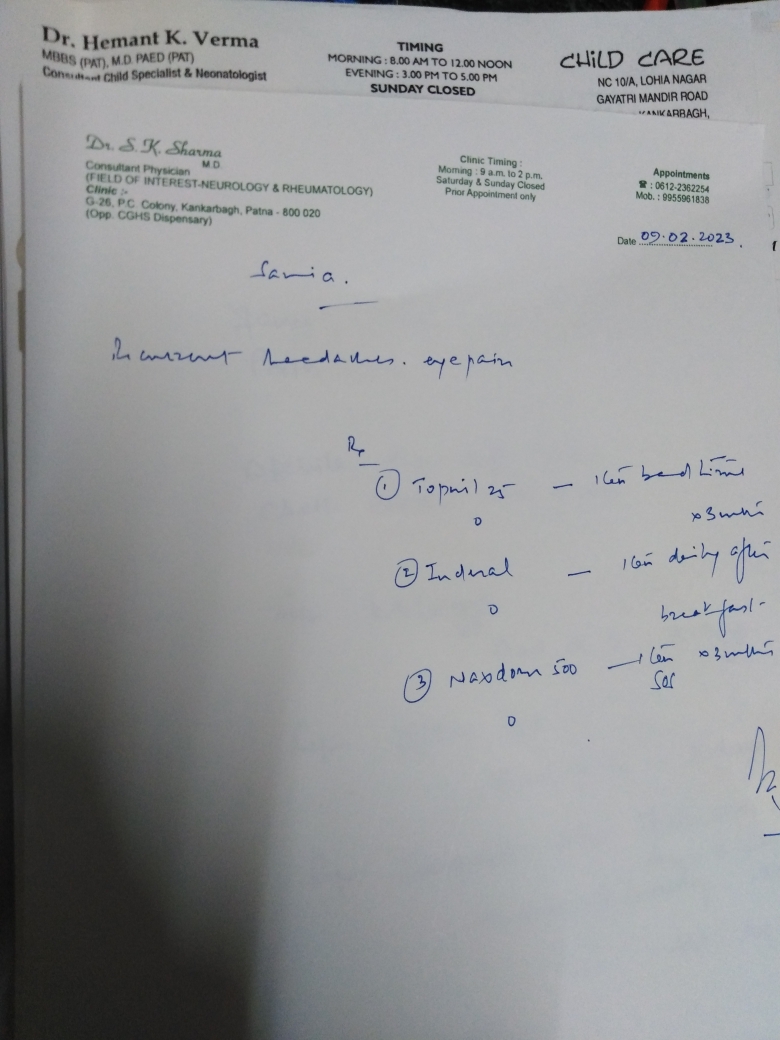 Dr. Hemant K. Verma
MBBS (PAT), M.D. PAED (PAT)
Consultant Child Specialist & Neonatologist
TIMING
MORNING : 8.00 AM TO 12.00 NOON
EVENING : 3.00 PM TO 5.00 PM
SUNDAY CLOSED
CHILD CARE
NC 10/A, LOHIA NAGAR
GAYATRI MANDIR ROAD
KANKARBAGH,
Dr. S. K. Sharma
M.D.
Consultant Physician
(FIELD OF INTEREST-NEUROLOGY & RHEUMATOLOGY)
Clinic :-
G-26, P.C. Colony, Kankarbagh, Patna - 800 020
(Opp. CGHS Dispensary)
Clinic Timing :
Morning : 9 a.m. to 2 p.m.
Saturday & Sunday Closed
Prior Appointment only
Appointments
☎ : 0612-2362254
Mob. : 9955961838
Date 09.02.2023.
headaches. eye pain
Rx
① 25 — bead time
② Inderal — daily after
breakfast
③ Naxdom 500 —
SOS